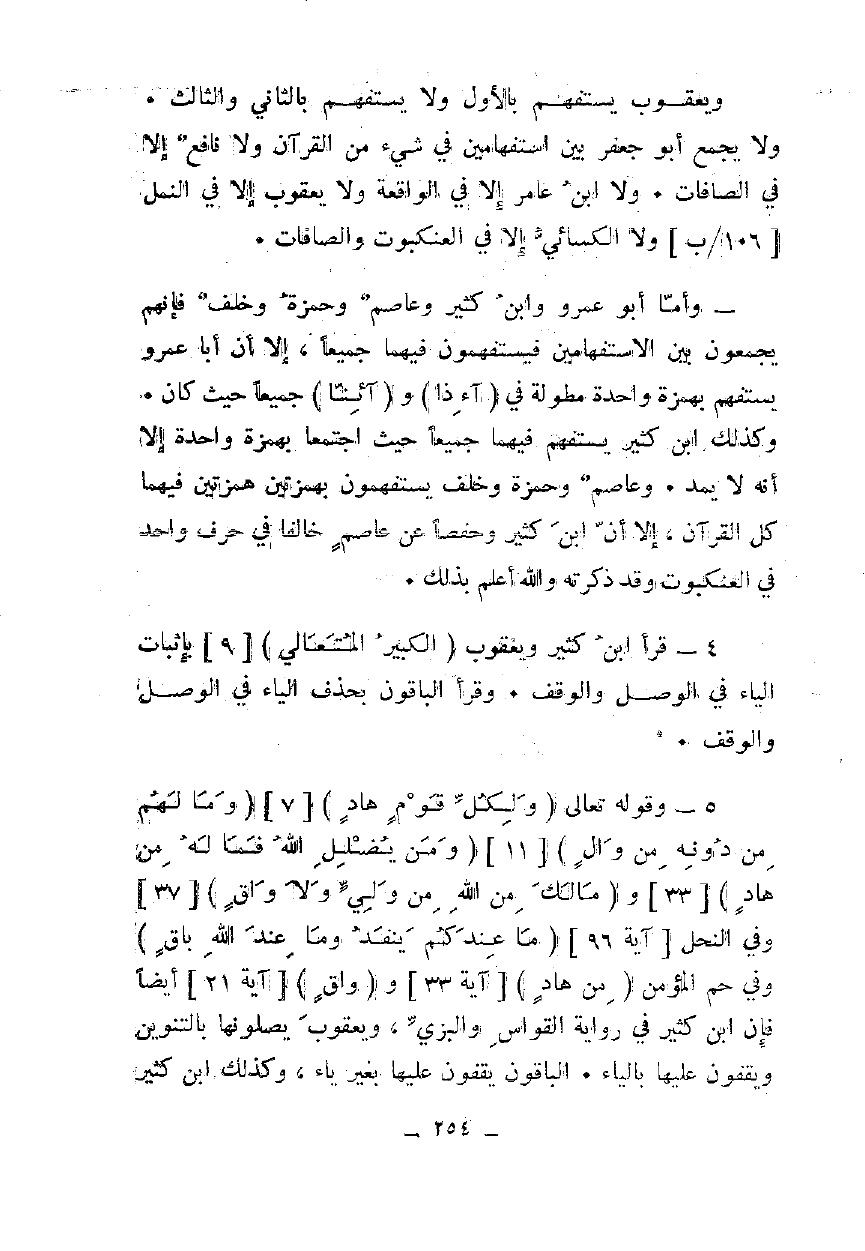 ويعقــوب يستفهــم بالأول ولا يستفهــم بالثاني والثالث •
ولا يجمع أبو جعفر بين استفهامين في شيء من القرآن ولا نافعٌ إلا
في الصافات • ولا ابنُ عامر إلا في الواقعة ولا يعقوب إلا في النمل
[ ١٠٦/ب ] ولا الكسائيُّ إلا في العنكبوت والصافات •
ـ وأمّا أبو عمرو وابنُ كثير وعاصمٌ وحمزةُ وخلفٌ فإنهم
يجمعون بين الاستفهامين فيستفهمون فيهما جميعاً ، إلا أن أبا عمرو
يستفهم بهمزة واحدة مطولة في ( آءِذا ) و ( آئِنَّا ) جميعاً حيث كان •
وكذلك ابن كثير يستفهم فيهما جميعاً حيث اجتمعا بهمزة واحدة إلا
أنه لا يمد • وعاصمٌ وحمزة وخلف يستفهمون بهمزتين همزتين فيهما
كل القرآن ، إلا أنّ ابنَ كثير وحفصاً عن عاصمٍ خالفا في حرف واحد
في العنكبوت وقد ذكرته والله أعلم بذلك •
٤ ـ قرأ ابنُ كثير ويعقوب ( الكبيرُ المُتَعَالي ) [ ٩ ] بإثبات
الياء في الوصــل والوقف • وقرأ الباقون بحذف الياء في الوصــل
والوقف •
٥ ـ وقوله تعالى ( وَلِكُلِّ قَوْمٍ هادٍ ) [ ٧ ] ( وَمَا لَهُم
مِن دُونِهِ مِن وَالٍ ) [ ١١ ] ( وَمَن يُضْلِلِ اللهُ فَمَا لَهُ مِن
هادٍ ) [ ٣٣ ] و ( مَالَكَ مِن اللهِ مِن وَلِيٍّ وَلاَ وَاقٍ ) [ ٣٧ ]
وفي النحل [ آية ٩٦ ] ( مَا عِندَكُم يَنفَدُ ومَا عِندَ اللهِ باقٍ )
وفي حم المؤمن ( مِن هادٍ ) [ آية ٣٣ ] و ( واقٍ ) [ آية ٢١ ] أيضاً
فإن ابن كثير في رواية القواسِ والبزيِّ ، ويعقوبَ يصلونها بالتنوين
ويقفون عليها بالياء • الباقون يقفون عليها بغير ياء ، وكذلك ابن كثير
ـ ٢٥٤ ـ